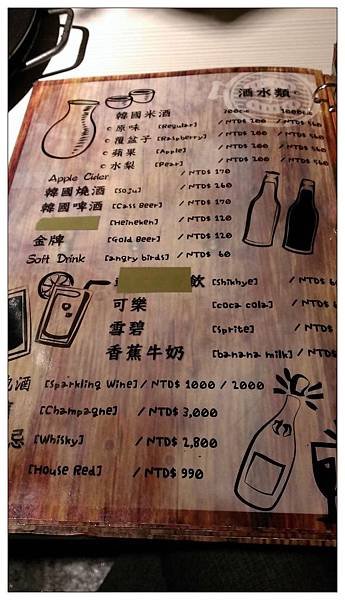 酒水類
韓國米酒
原味 [Regular] / NTD$ 200 / NTD$ 560
覆盆子 [Raspberry] / NTD$ 200 / NTD$ 560
蘋果 [Apple] / NTD$ 200 / NTD$ 560
水梨 [Pear] / NTD$ 200 / NTD$ 560
Apple Cider / NTD$ 170
韓國燒酒 [Soju] / NTD$ 260
韓國啤酒 [Cass Beer] / NTD$ 170
[Heineken] / NTD$ 120
金牌 [Gold Beer] / NTD$ 120
Soft Drink [angry birds] / NTD$ 60
飲 [Shikhye] / NTD$
可樂 [coca cola] / NTD$
雪碧 [Sprite] / NTD$
香蕉牛奶 [banana milk] / NTD$
酒 [Sparkling Wine] / NTD$ 1000 / 2000
[Champagne] / NTD$ 3,000
忌 [Whisky] / NTD$ 2,800
[House Red] / NTD$ 990